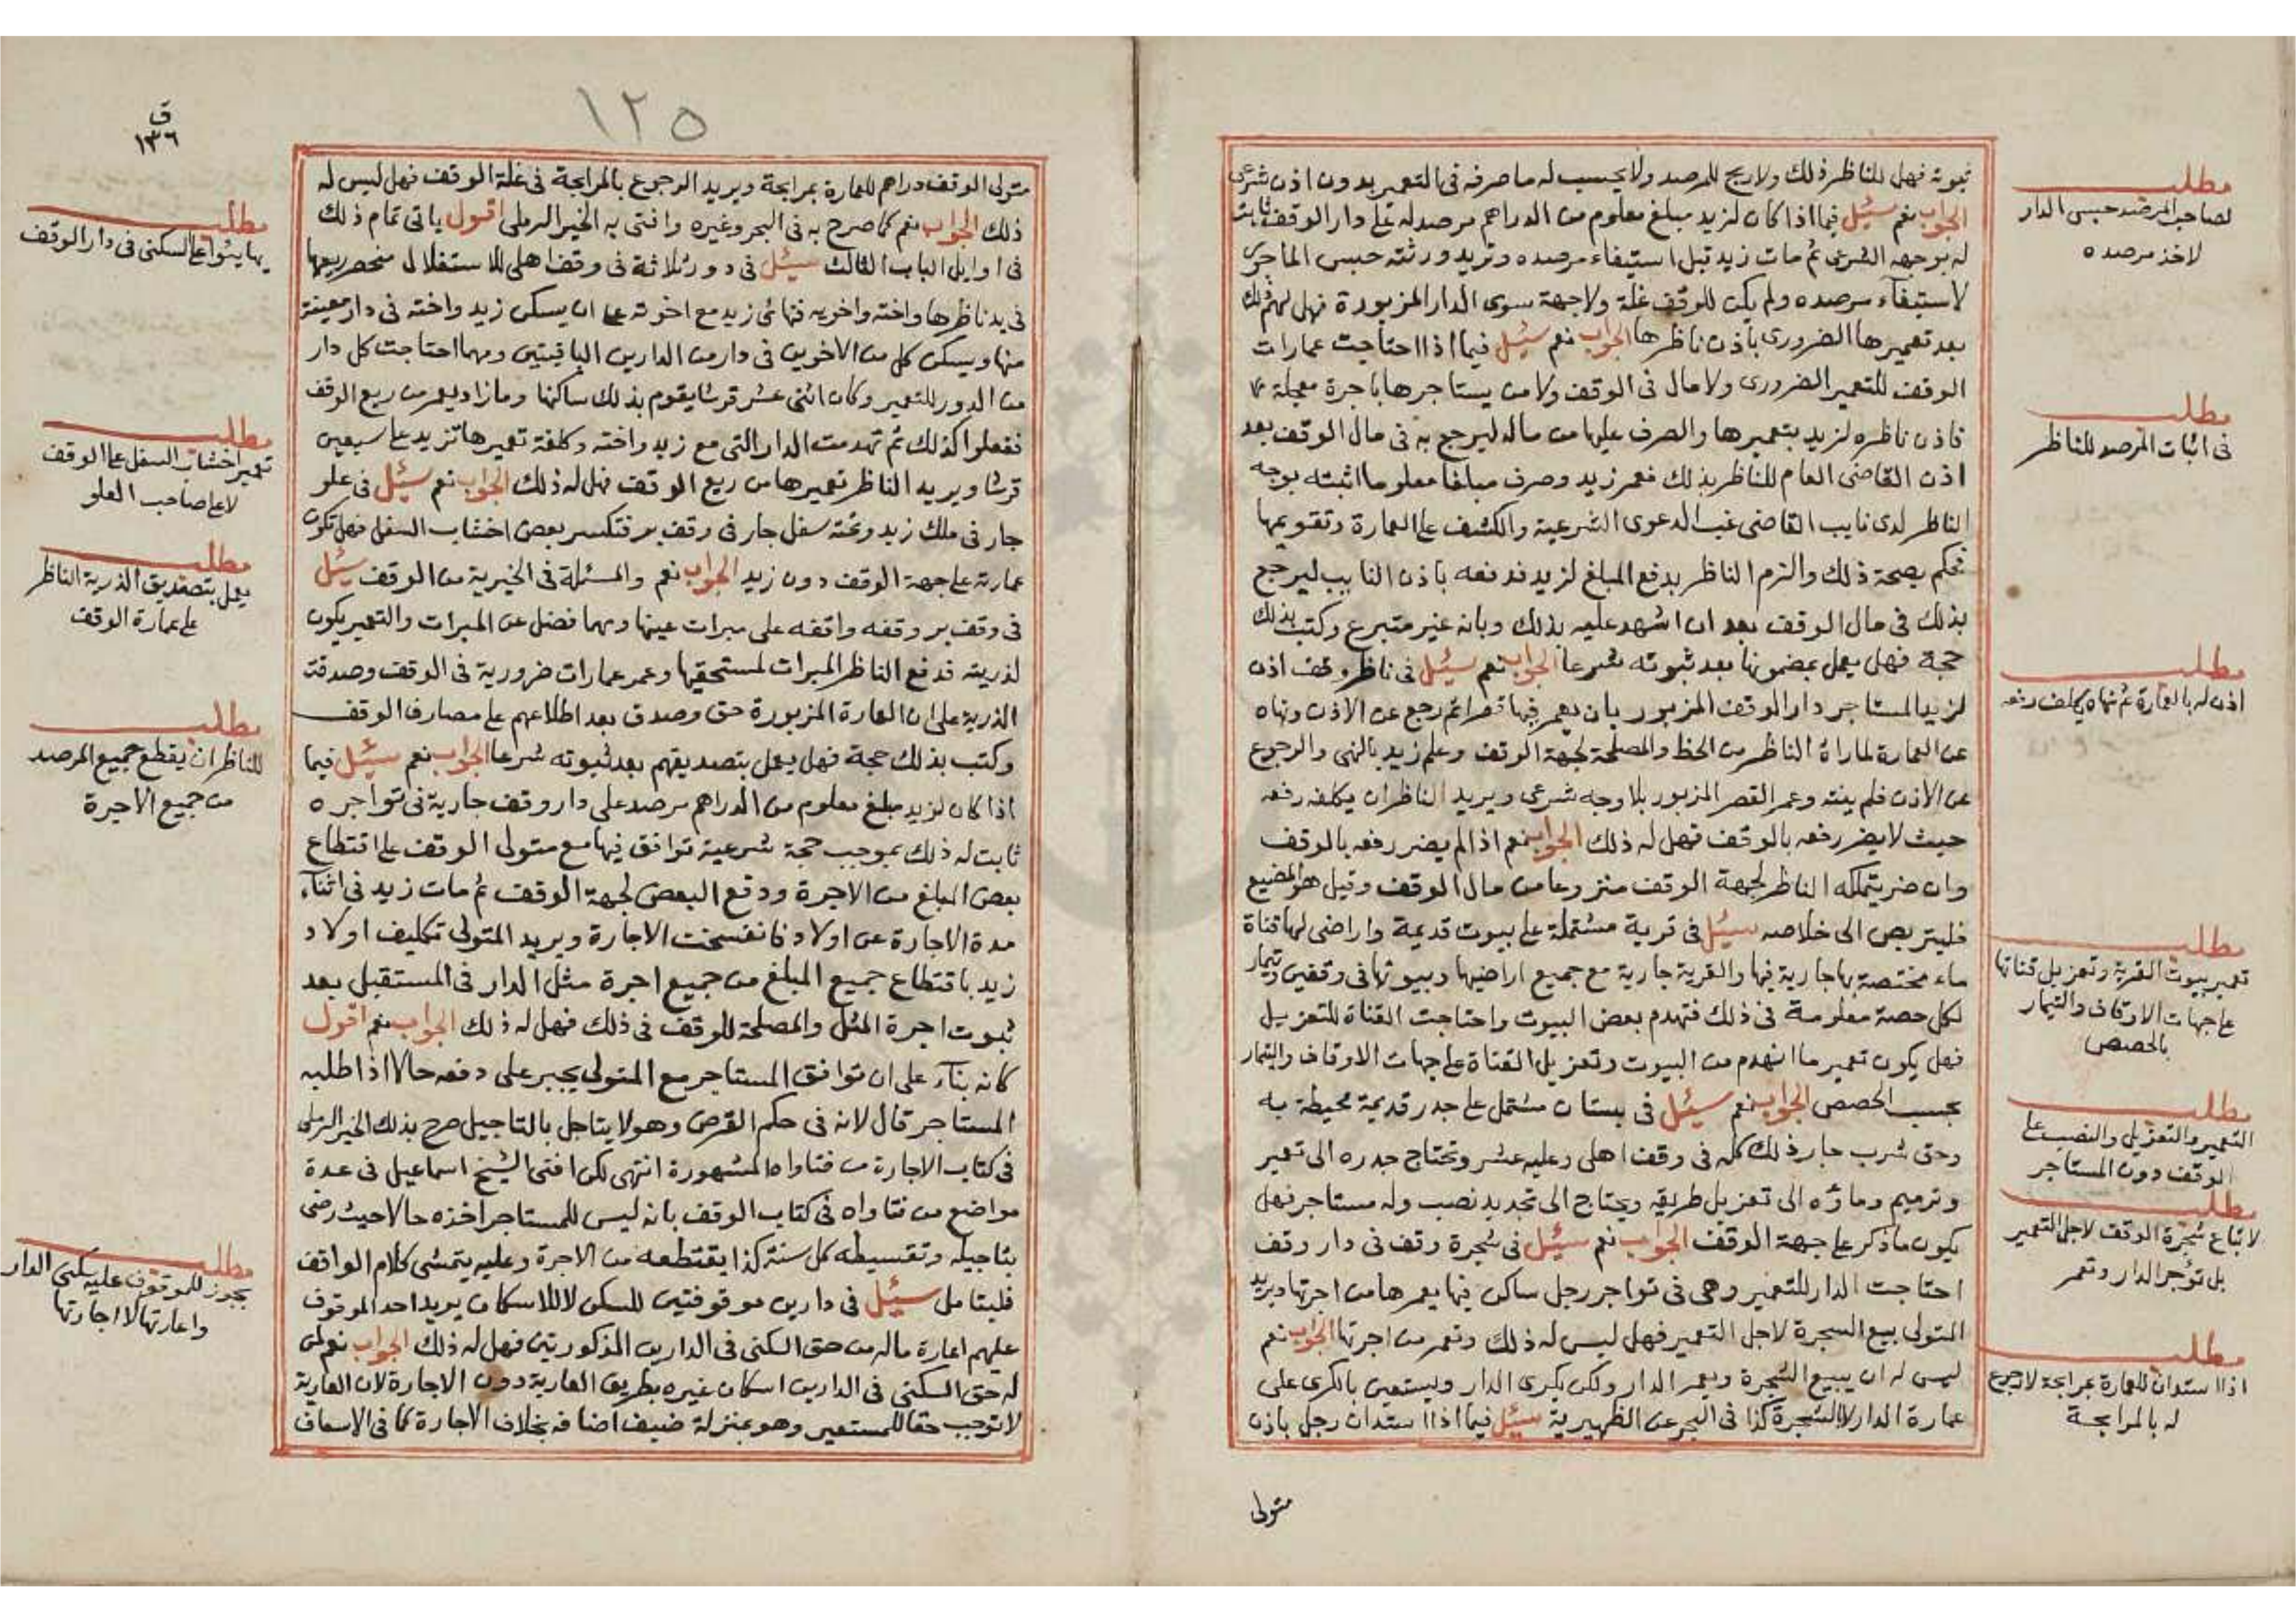 ثبوته فهل للناظر ذلك ولا ربح للمرصد ولا يحسب له ما صرفه في التعمير بدون اذن شرعي
الجواب نعم سئل فيما اذا كان لزيد مبلغ معلوم من الدراهم مرصد له على دار الوقف ثابت
له بوجهه الشرعي ثم مات زيد قبل استيفاء مرصده وتريد ورثته حبس الماجرى
لاستيفاء مرصده ولم يكن للوقف غلة ولا جهة سوى الدار المزبورة فهل لهم ذلك
بعد تعميرها الضروري باذن ناظرها الجواب نعم سئل فيما اذا احتاجت عمارات
الوقف للتعمير الضروري ولا مال في الوقف ولا من يستاجرها باجرة معجلة
فاذن ناظره لزيد بتعميرها والصرف عليها من ماله ليرجع به في مال الوقف بعد
اذن القاضي العام للناظر بذلك فعمر زيد وصرف مبلغا معلوما اثبته بوجه
الناظر لدى نايب القاضي غب الدعوى الشرعية والكشف على العمارة وتقويمها
فحكم بصحة ذلك والزم الناظر بدفع المبلغ لزيد فدفعه باذن النايب ليرجع
بذلك في مال الوقف بعد ان اشهد عليه بذلك وبانه غير متبرع وكتب بذلك
حجة فهل يعمل بمضمونها بعد ثبوته شرعا الجواب نعم سئل في ناظر وقف اذن
لزيد المستاجر دار الوقف المزبور بان يعمر فيها قصرا ثم رجع عن الاذن ونهاه
عن العمارة لما راه الناظر من الحظ والمصلحة لجهة الوقف وعلم زيد بالنهي والرجوع
عن الاذن فلم ينته وعمر القصر المزبور بلا وجه شرعي ويريد الناظر ان يكلفه رفعه
حيث لا يضر رفعه بالوقف فهل له ذلك الجواب نعم اذا لم يضر رفعه بالوقف
وان ضر يتملكه الناظر لجهة الوقف منزوعا من مال الوقف وقيل هو المضيع
فليتربص الى خلاصه سئل في قرية مشتملة على بيوت قديمة واراضي لها قناة
ماء مختصة بها جارية فيها والقرية جارية مع جميع اراضيها وبيوتها في وقفين وتيمار
لكل حصة معلومة في ذلك فتهدم بعض البيوت واحتاجت القناة للتعزيل
فهل يكون تعمير ما انهدم من البيوت وتعزيل القناة على جهات الاوقاف والتيمار
بحسب الحصص الجواب نعم سئل في بستان مشتمل على جدر قديمة محيطة به
وحق شرب جار ذلك كله في وقف اهلي وعليه عشر وتحتاج جدره الى تعمير
وترميم وماؤه الى تعزيل طريقه ويحتاج الى تجديد نصب وله مستاجر فهل
يكون ما ذكر على جهة الوقف الجواب نعم سئل في شجرة وقف في دار وقف
احتاجت الدار للتعمير وهي في تواجر رجل ساكن فيها يعمرها من اجرتها ويريد
المتولى بيع الشجرة لاجل التعمير فهل ليس له ذلك وتعمر من اجرتها الجواب نعم
ليس له ان يبيع الشجرة ويعمر الدار ولكن يكرى الدار ويستعين بالكرى على
عمارة الدار لا الشجرة كذا في البحر عن الظهيرية سئل فيما اذا استدان رجل باذن
متولى
مطلب
لصاحب المرصد حبس الدار
لاخذ مرصده
مطلب
في اثبات المرصد للناظر
مطلب
اذن له بالعمارة ثم نهاه يكلف رفعه
مطلب
تعمير بيوت القرية وتعزيل قناتها
على جهات الاوقاف والتيمار
بالحصص
مطلب
التعمير والتعزيل والنصب على
الوقف دون المستاجر
مطلب
لا تباع شجرة الوقف لاجل التعمير
بل تؤجر الدار وتعمر
مطلب
اذا استدان للعمارة بمرابحة لا رجوع
له بالمرابحة
١٢٥
ق
١٣٦
متولى الوقف دراهم للعمارة بمرابحة ويريد الرجوع بالمرابحة في غلة الوقف فهل ليس له
ذلك الجواب نعم كما صرح به في البحر وغيره وافتى به الخير الرملي اقول ياتي تمام ذلك
في اوايل الباب الثالث سئل في دور ثلاثة في وقف اهلي للاستغلال منحصر ريعها
في يد ناظرها واخته واخويه فتهائى زيد مع اخوته على ان يسكن زيد واخته في دار معينة
منها ويسكن كل من الاخوين في دار من الدارين الباقيتين ومهما احتاجت كل دار
من الدور للتعمير وكان اثنى عشر قرشا يقوم بذلك ساكنها وما زاد يعمر من ريع الوقف
ففعلوا كذلك ثم تهدمت الدار التي مع زيد واخته وكلفة تعميرها تزيد على سبعين
قرشا ويريد الناظر تعميرها من ريع الوقف فهل له ذلك الجواب نعم سئل في علو
جار في ملك زيد وتحته سفل جار في وقف بر فتكسر بعض اخشاب السفل فهل تكون
عمارته على جهة الوقف دون زيد الجواب نعم والمسئلة في الخيرية من الوقف سئل
في وقف بر وقفه واقفه على مبرات عينها ومهما فضل عن المبرات والتعمير يكون
لذريته فدفع الناظر المبرات لمستحقيها وعمر عمارات ضرورية في الوقف وصدقته
الذرية على ان العمارة المزبورة حق وصدق بعد اطلاعهم على مصارف الوقف
وكتب بذلك حجة فهل يعمل بتصديقهم بعد ثبوته شرعا الجواب نعم سئل فيما
اذا كان لزيد مبلغ معلوم من الدراهم مرصد على دار وقف جارية في تواجره
ثابت له ذلك بموجب حجة شرعية توافق فيها مع متولى الوقف على اقتطاع
بعض المبلغ من الاجرة ودفع البعض لجهة الوقف ثم مات زيد في اثناء
مدة الاجارة عن اولاد فانفسخت الاجارة ويريد المتولى تكليف اولاد
زيد باقتطاع جميع المبلغ من جميع اجرة مثل الدار في المستقبل بعد
ثبوت اجرة المثل والمصلحة للوقف في ذلك فهل له ذلك الجواب نعم اقول
كانه بناء على ان توافق المستاجر مع المتولى يجبر على دفعه حالا اذا طلبه
المستاجر قال لانه في حكم القرض وهو لا يتاجل بالتاجيل صرح بذلك الخير الرملي
في كتاب الاجارة من فتاواه المشهورة انتهى لكن افتى الشيخ اسماعيل في عدة
مواضع من فتاواه في كتاب الوقف بانه ليس للمستاجر اخذه حالا حيث رضى
بتاجيله وتقسيطه كل سنة كذا يقتطعه من الاجرة وعليه يتمشى كلام الواقف
فليتامل سئل في دارين موقوفتين للسكن لا للاسكان يريد احد الموقوف
عليهم اعارة ماله من حق السكنى في الدارين المذكورتين فهل له ذلك الجواب نعم لمن
له حق السكنى في الدارين اسكان غيره بطريق العارية دون الاجارة لان العارية
لا توجب حقا للمستعير وهو بمنزلة ضيف اضافه بخلاف الاجارة كما في الاسعاف
مطلب
يهايئوا على السكنى في دار الوقف
مطلب
تعمير اخشاب السفل على الوقف
لا على صاحب العلو
مطلب
يعمل بتصديق الذرية الناظر
على عمارة الوقف
مطلب
للناظر ان يقطع جميع المرصد
من جميع الاجرة
مطلب
يجوز للموقوف عليه سكنى الدار
واعارتها لا اجارتها